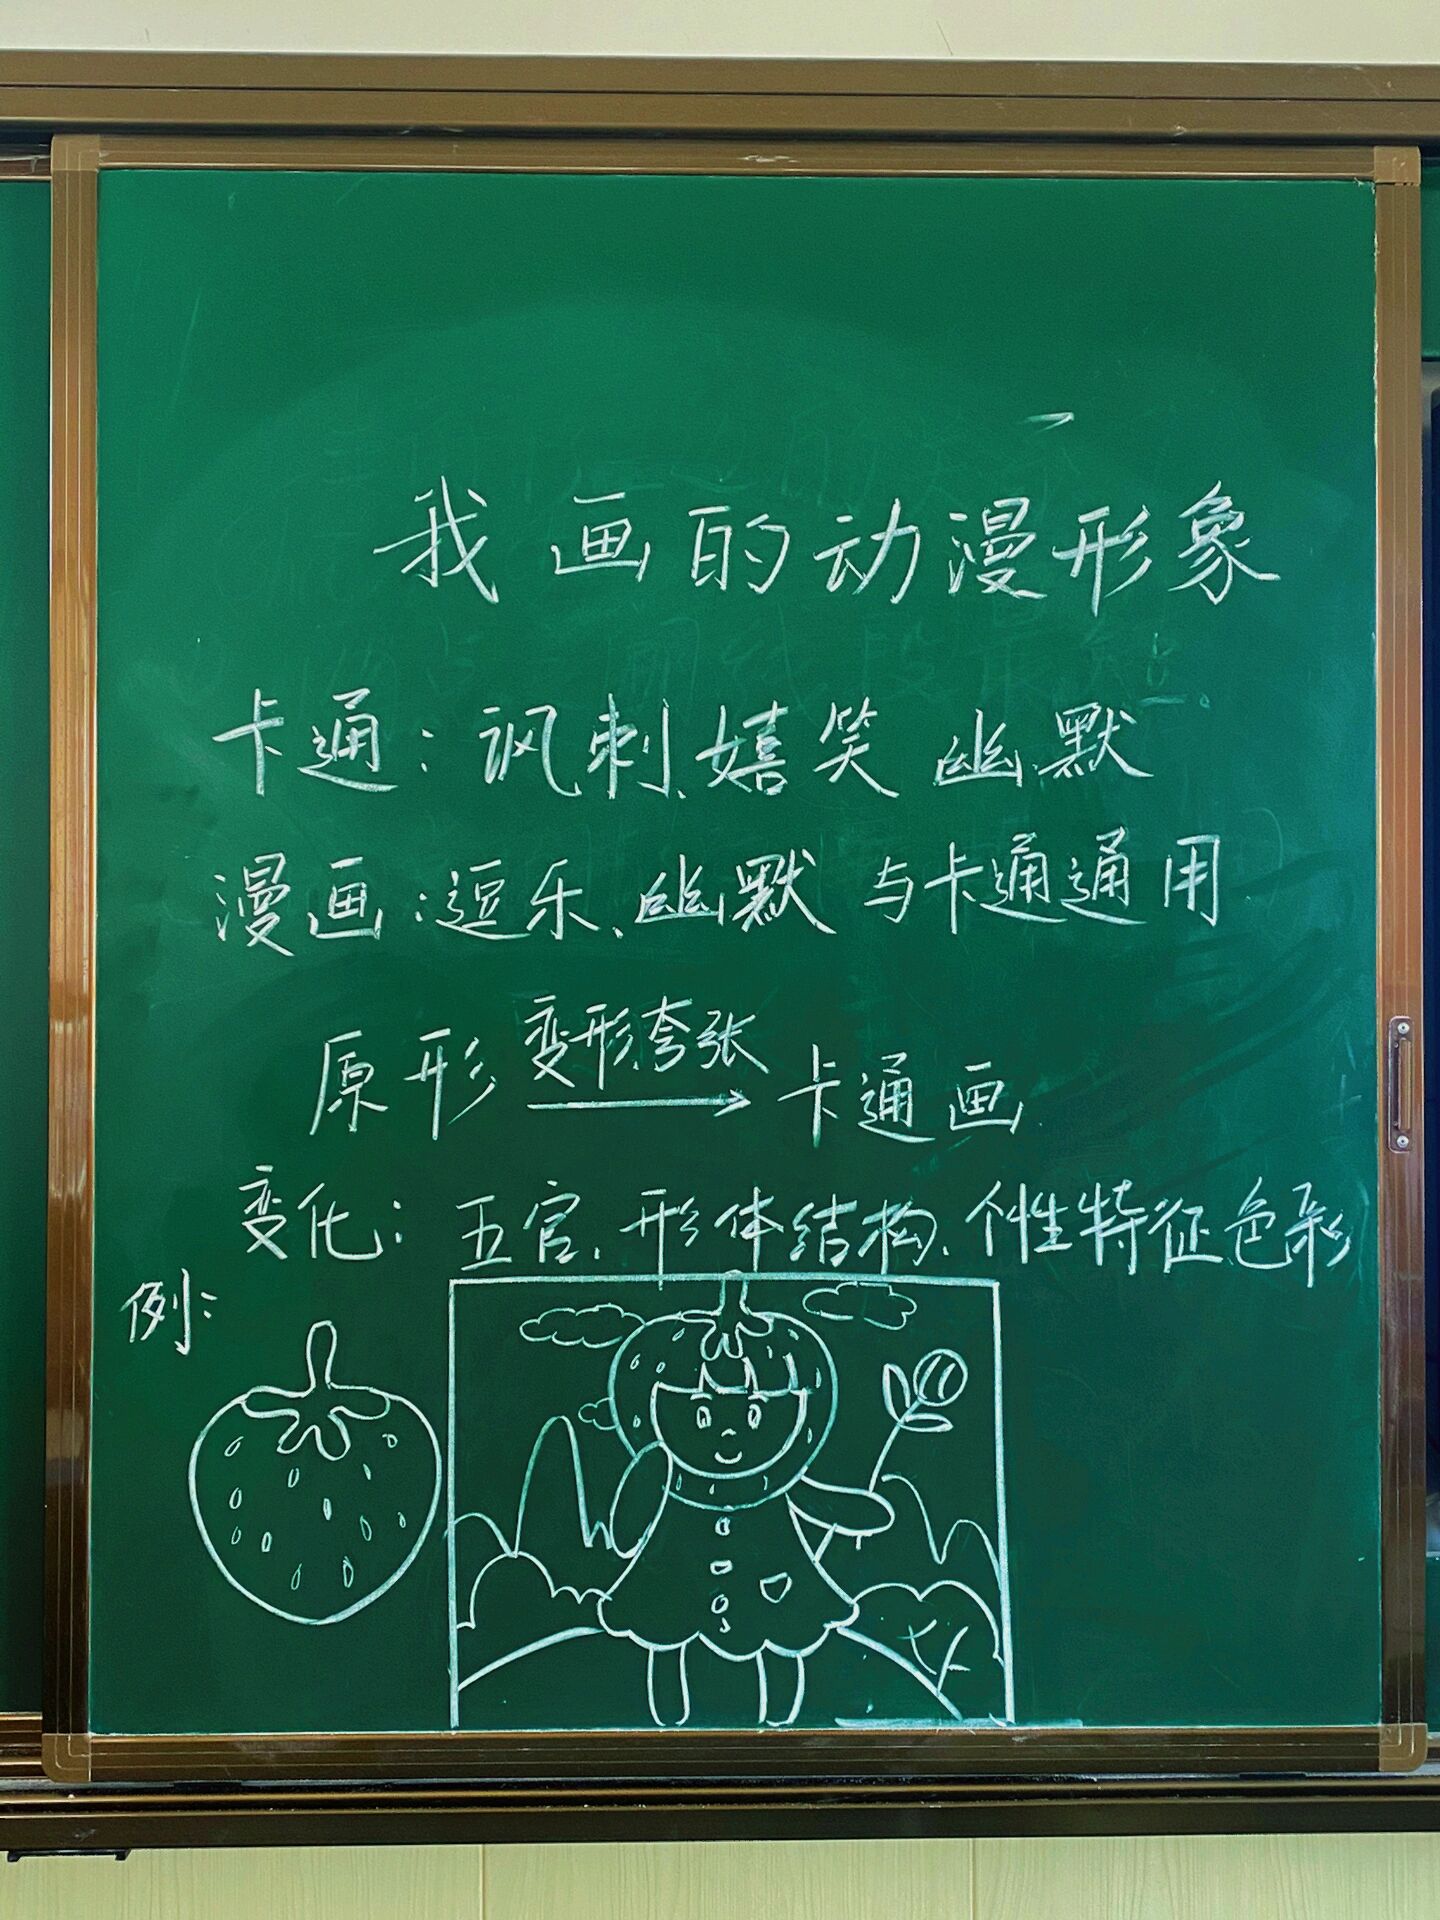 我画的动漫形象
卡通：讽刺、嬉笑 幽默
漫画：逗乐、幽默 与卡通通用
原形 变形、夸张 → 卡通画
变化：五官、形体结构、个性特征、色彩
例：